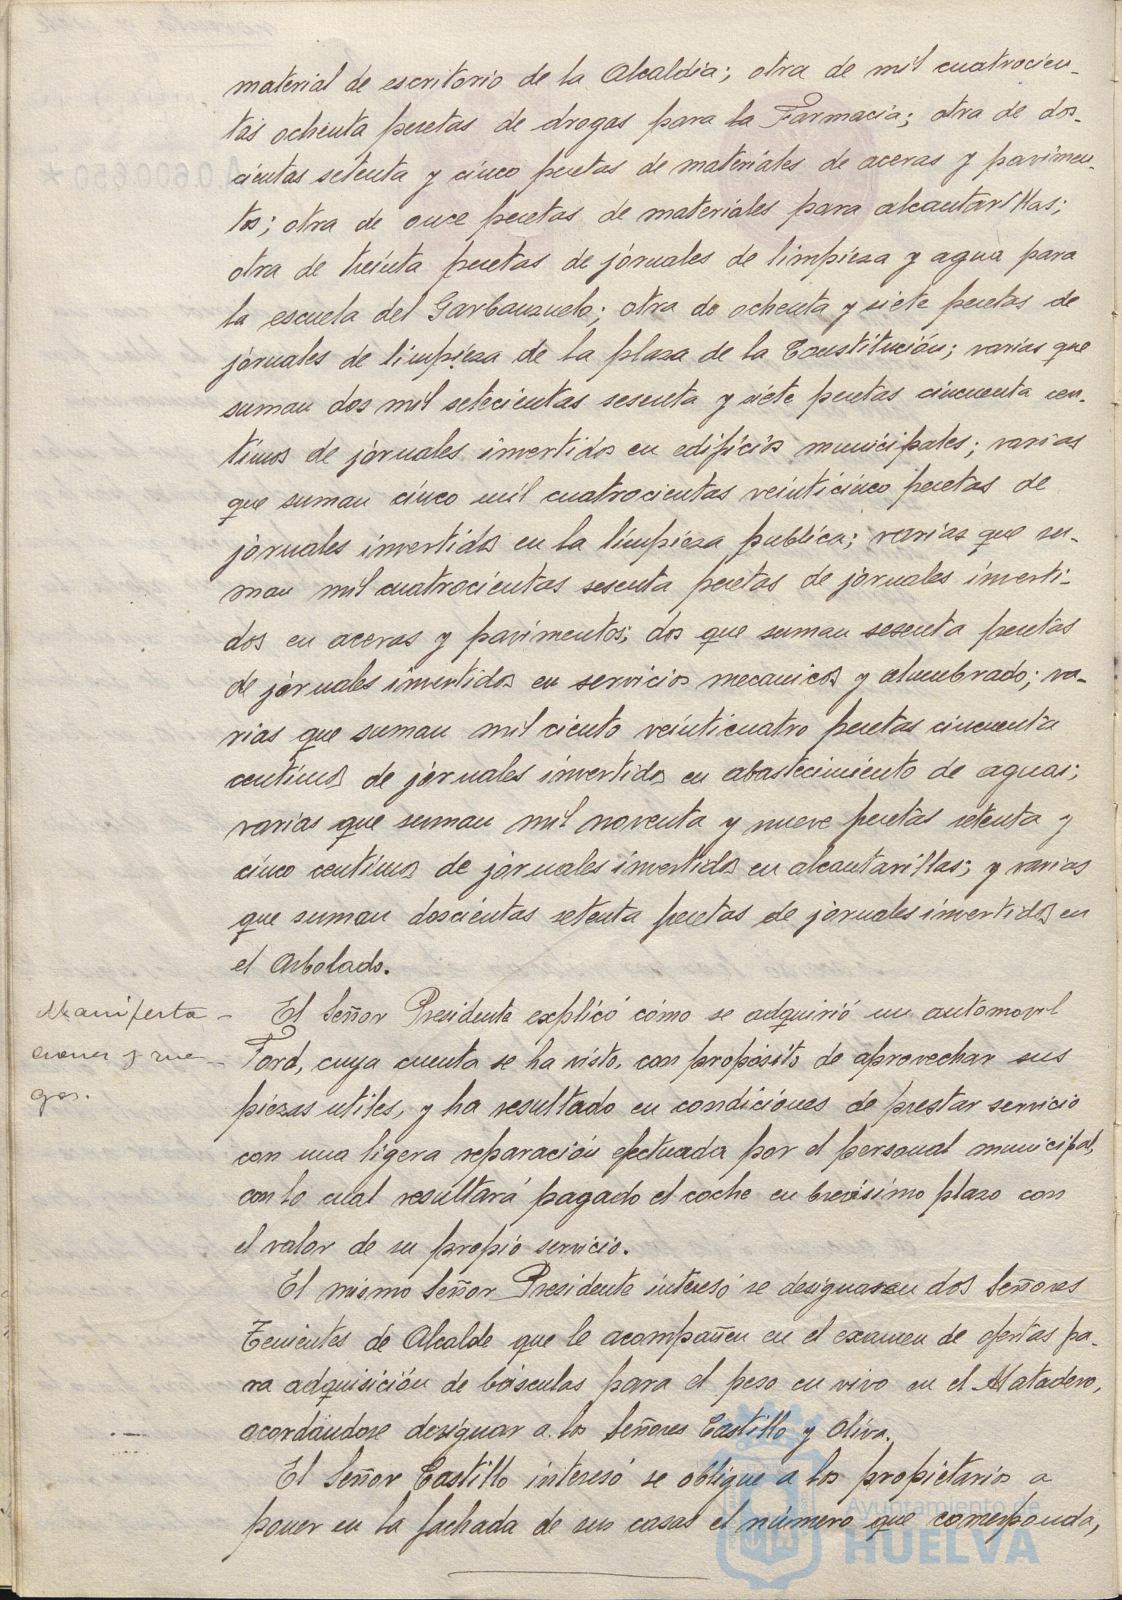 material de escritorio de la Alcaldía; otra de mil cuatrocien-
tas ochenta pesetas de drogas para la Farmacia; otra de dos-
cientas setenta y cinco pesetas de materiales de aceras y pavimen-
tos; otra de once pesetas de materiales para alcantarillas;
otra de treinta pesetas de jornales de limpieza y agua para
la escuela del Garbanzuelo; otra de ochenta y siete pesetas de
jornales de limpieza de la plaza de la Constitución; varias que
suman dos mil setecientas sesenta y siete pesetas cincuenta cen-
timos de jornales invertidos en edificios municipales; varias
que suman cinco mil cuatrocientas veinticinco pesetas de
jornales invertidos en la limpieza publica; varias que su-
man mil cuatrocientas sesenta pesetas de jornales inverti-
dos en aceras y pavimentos; dos que suman sesenta pesetas
de jornales invertidos en servicios mecanicos y alumbrado; va-
rias que suman mil ciento veinticuatro pesetas cincuenta
centimos de jornales invertidos en abastecimiento de aguas;
varias que suman mil noventa y nueve pesetas setenta y
cinco centimos de jornales invertidos en alcantarillas; y varias
que suman doscientas setenta pesetas de jornales invertidos en
el Arbolado.
Manifesta-
ciones y rue-
gos.
El Señor Presidente explicó cómo se adquirió un automovil
Ford, cuya cuenta se ha visto, con propósito de aprovechar sus
piezas utiles, y ha resultado en condiciones de prestar servicio
con una ligera reparación efectuada por el personal municipal,
con lo cual resultará pagado el coche en brevisimo plazo con
el valor de su propio servicio.
El mismo Señor Presidente interesó se designasen dos Señores
Tenientes de Alcalde que le acompañen en el examen de ofertas pa-
ra adquisición de básculas para el peso en vivo en el Matadero,
acordándose designar a los Señores Castillo y Oliva.
El Señor Castillo interesó se obligue a los propietarios a
poner en la fachada de sus casas el número que corresponda,
Ayuntamiento de
HUELVA